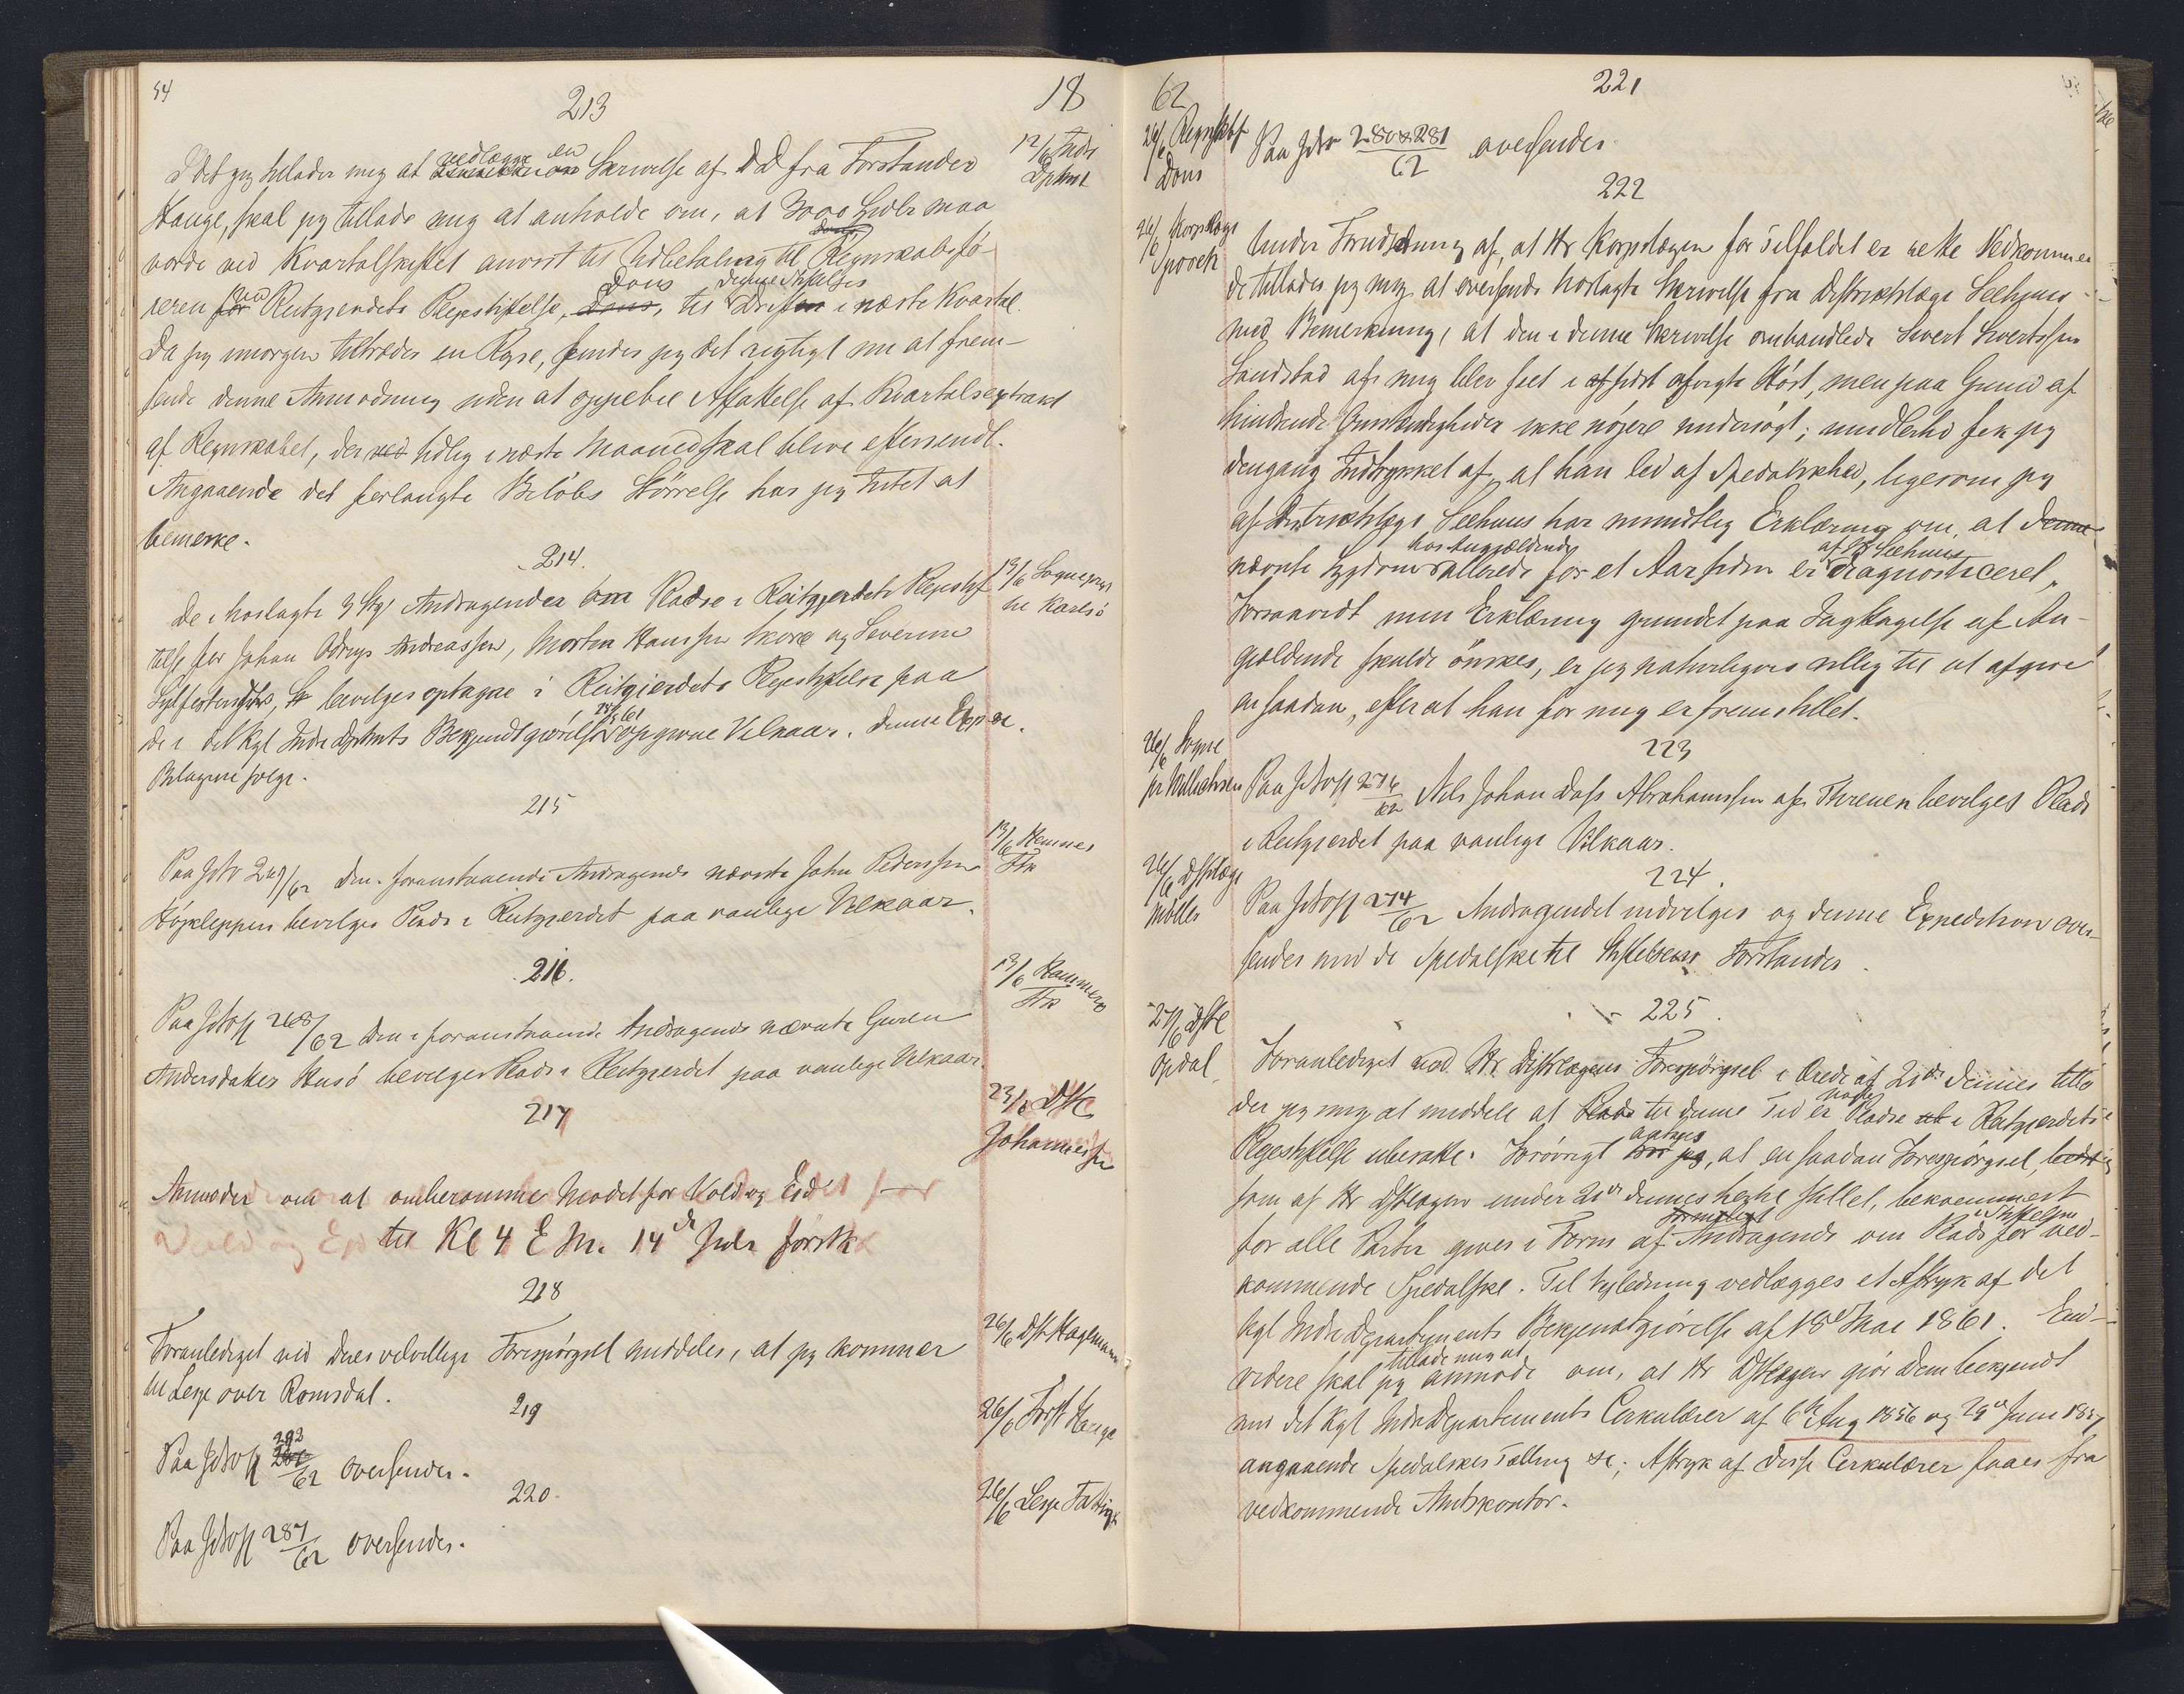 54
18
213
12/6 Indr
Dptmt
Idet jeg tillader mig at vedlægge en Skrivelse af D D fra Forstander
Hauge, skal jeg tillade mig at anholde om, at 3000 Spdlr maa
vorde ved Kvartalskiftet anvist til Udbetaling til Regnskabsfö-
reren ved Reitgjerdets Plejestiftelse, Dons, til denne Stiftelses Drift i næste Kvartal.
Da jeg imorgen tiltræder en Rejse, finder jeg det rigtigt nu at frem-
sende denne Anmodning uden at oppebie Affattelse af Kvartalsextrakt
af Regnskabet, der tidlig i næste Maaned skal blive eftersendt.
Angaaende det forlangte Belöbs Störrelse har jeg Intet at
bemerke.
214.
13/6 Sognepræst
til Karlsö
De i hoslagte 3 Stkr Andragender om Pladse i Reitgjerdets Plejestif
telse for Johan Andreassen, Morten Hanssen og Severine
bevilges optagne i Reitgjerdets Plejestiftelse paa
de i det Kgl Indr Dptmts Bekjendtgjörelse 18/5 61 opgivne Vilkaar. Denne Exp. &
Bilagene fölge.
215
13/6 Hemnes
Ftk
Paa JNo 269/62 Den i foranstaaende Andragende nævnte John Pederssen
Höjkleppen bevilges Plads i Reitgjerdet paa vanlige Vilkaar.
216.
13/6 Hammerø
Ftk
Paa JNo 268/62 Den i foranstaaende Andragende nævnte Guren
Andersdatter Husö bevilges Plads i Reitgjerdet paa vanlige Vilkaar.
217
23/6 Dstl
Johannessen
Anmoder om at omberamme Mödet for Vold og Eid
til Kl 4 E M. 14de Juli förstk
218
26/6 Dstl Hagemann
Foranlediget ved Deres velvillige Forespörgsel meddeles, at jeg kommer
til Lesje over Romsdal.
219
26/6 Forst Hauge
Paa JNo 292/62 oversendes.
220.
26/6 Lesje Fattigk
Paa JNo 287/62 oversendes.
62
221
26/6 Regnskbf
Dons
Paa JNr 280 & 281/62 oversendes.
222
26/6 Korpslæge
Under Forudsætning af, at Hr Korpslægen for Tilfældet er rette Vedkommen
de tillader jeg mig at oversende hoslagte Skrivelse fra Distriktslæge Seehuus
med Bemerkning, at den i denne Skrivelse omhandlede Sivert Sivertssen
Sandstad af mig blev seet i sidst afvigte Höst, men paa Grund af
hindrende Omstændigheder ikke nöjere undersögt; imidlertid fik jeg
dengang Indtrykket af, at han led af Spedalskhed, ligesom jeg
af Distriktslæge Seehuus har mundtlig Erklæring om, at
nævnte Sygdom hos Angjældende allerede for et Aar siden er af Hr Seehuus diagnosticeret.
Forsaavidt min Erklæring grundet paa Iagttagelse af An-
gjældende skulde önskes, er jeg naturligvis villig til at afgive
en saadan, efterat han for mig er fremstillet.
223
26/6 Sogne
pr
Paa JNo 276/62 Nils Johan Dass Abrahamssen af Threnen bevilges Plads
i Reitgjerdet paa vanlige Vilkaar.
224.
26/6 Dstlæge
Möller
Paa JNo 274/62 Andragendet indvilges og denne Expedition over-
sendes med de Spedalske til Stiftelsens Forstander.
225.
27/6 Dstl
Opdal
Foranlediget ved Hr Distlægens Forespörgsel i Brev af 21de dennes tilla
der jeg mig at meddele at til denne Tid er nogle Pladse i Reitgjerdets
Plejestiftelse ubesatte. Forövrigt antages, at en saadan Forespörgsel,
som af Hr Dstlægen under 21de dennes er stillet, bekvemmest
for alle Parter gives i Form af Andragende om Plads i Stiftelsen for ved-
kommende Spedalske. Til Vejledning vedlægges et Aftryk af det
kgl Indre Departements Bekjendtgjörelse af 18de Mai 1861. End-
videre skal jeg tillade mig at anmode om, at Hr Dstlægen gjör Dem bekjendt
med det Kgl Indre Departements Cirkulærer af 6te Aug 1856 og 29de Juni 1857
angaaende Spedalskes Tælling &c; Aftryk af disse Cirkulærer faaes fra
vedkommende Amtskontor.